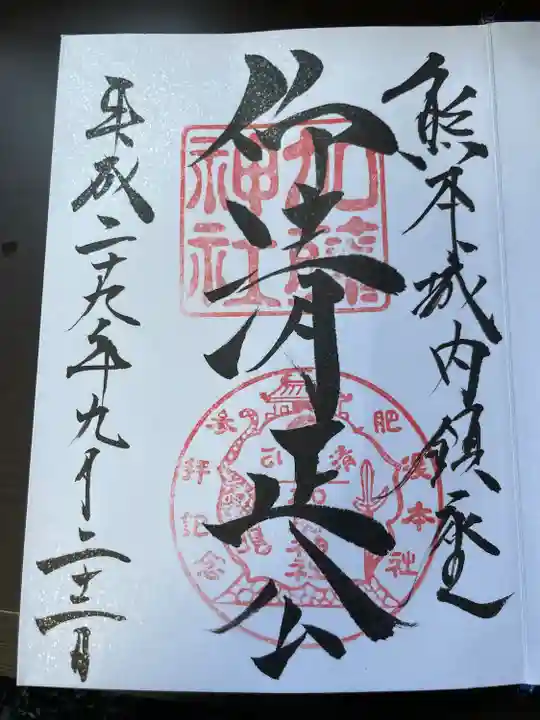 熊本城内鎮座
仰清正公
平成二十九年九月二十二日
加藤
神社
肥後本社
参拝記念